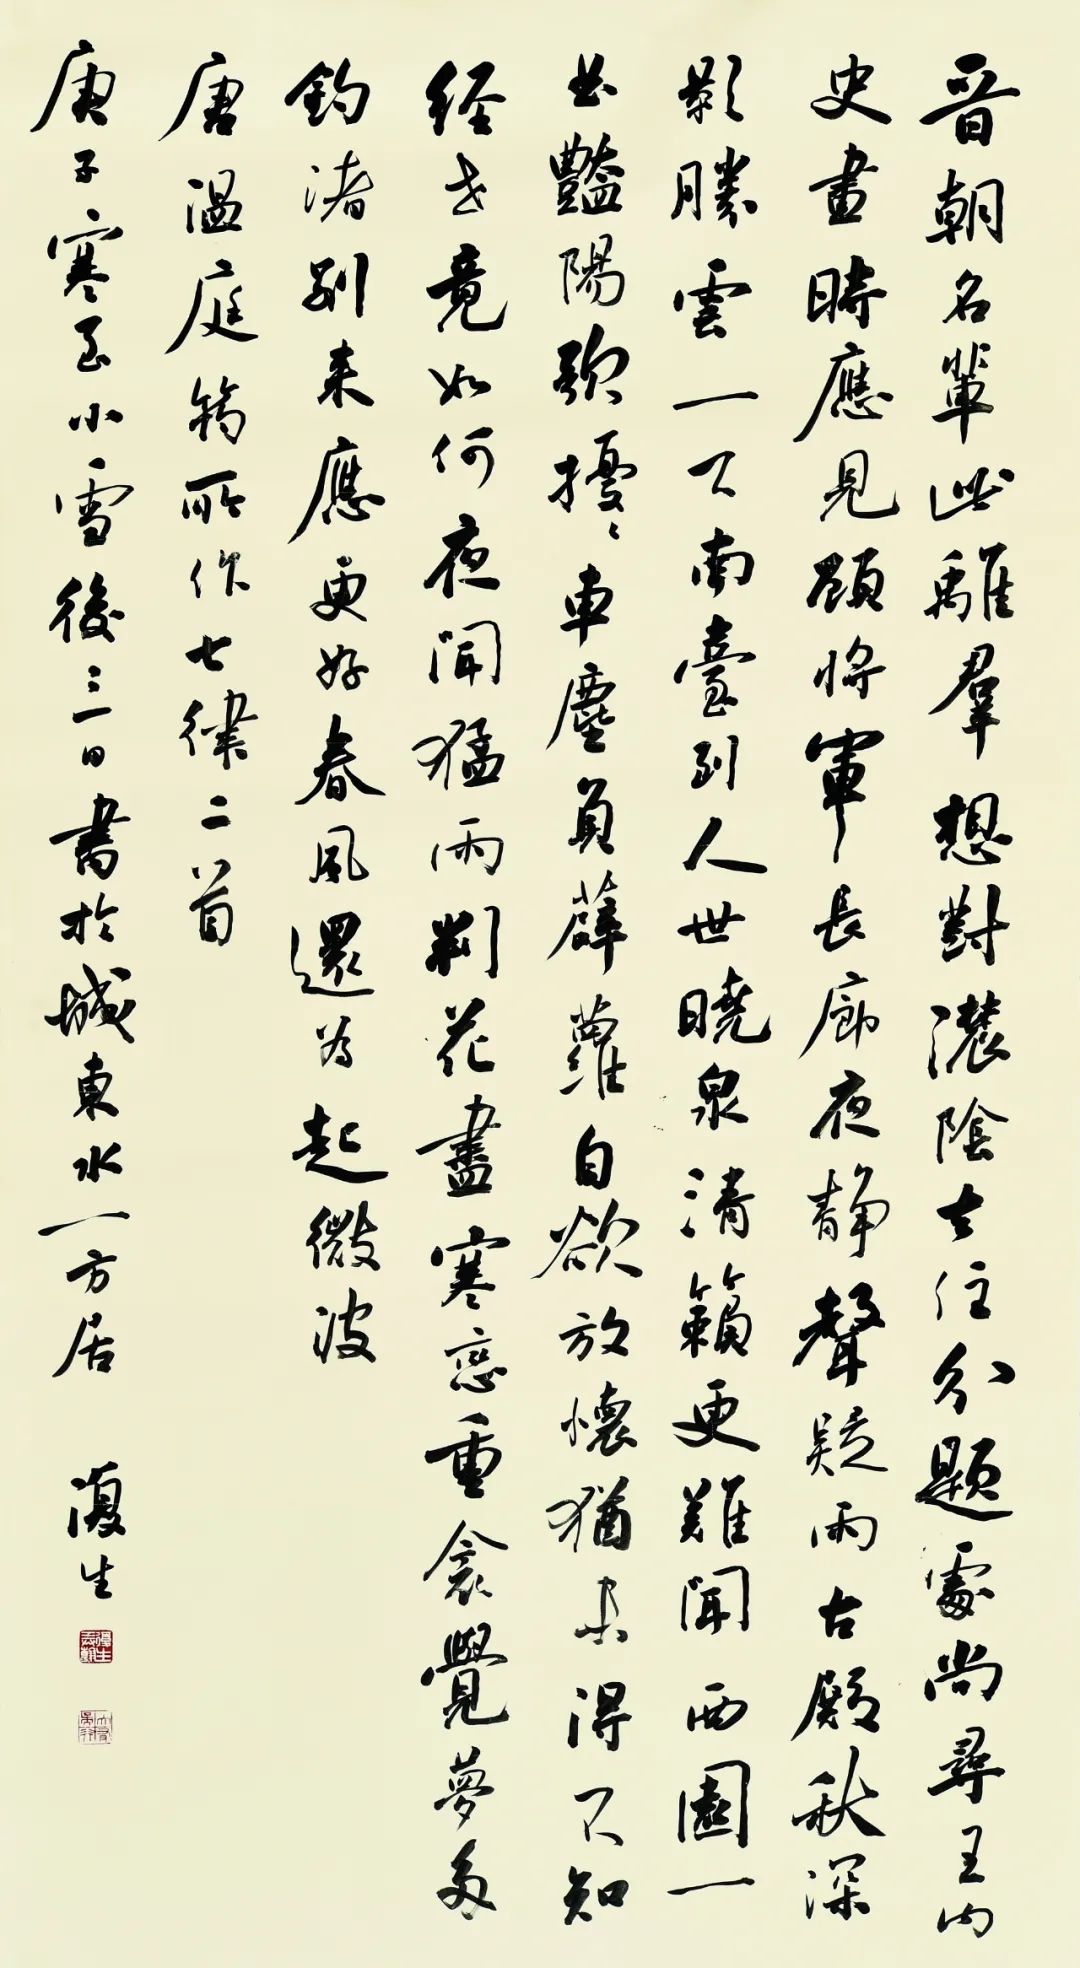 晋朝名輩此離羣想對濃陰去住分題處尚尋王内
史畫時應見顧將軍長廊夜静聲疑雨古殿秋深
影勝雲一下南臺到人世曉泉清籟更難聞西園一
曲豔陽歌擾〻車塵負薜蘿自欲放懷猶未得不知
経世竟如何夜聞猛雨判花盡寒戀重衾覺夢多
釣渚别来應更好春風還為起微波
唐温庭筠所作七律二首
庚子寒至小雪後三日書於城東水一方居 生